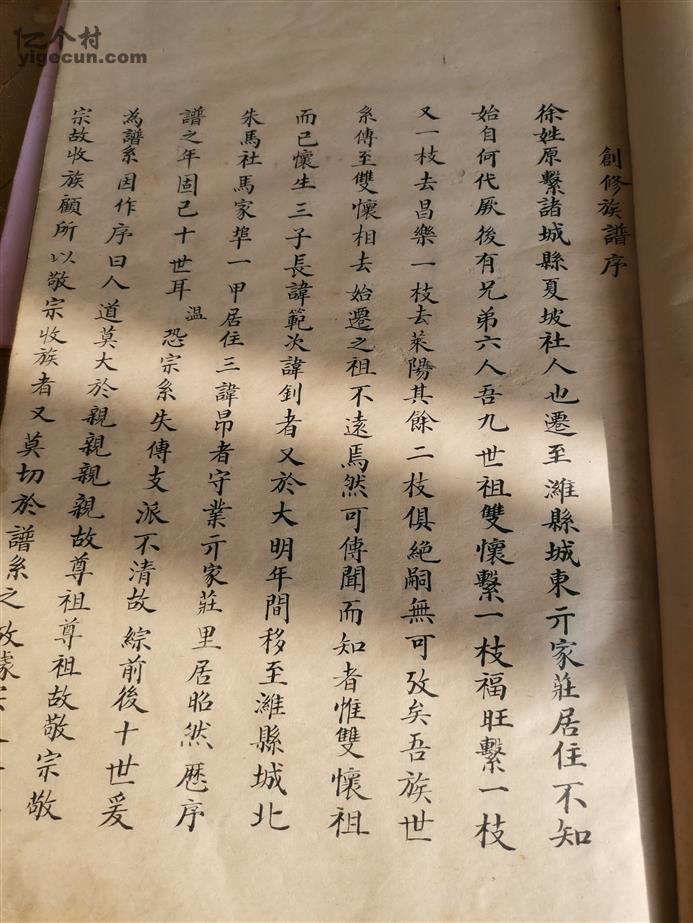 亿个村
yigecun.com
創修族譜序
徐姓原繫諸城縣夏坡社人也遷至濰縣城東亓家莊居住不知
始自何代厥後有兄弟六人吾九世祖雙懷繫一枝福旺繫一枝
又一枝去昌樂一枝去萊陽其餘二枝俱絕嗣無可攷矣吾族世
系傳至雙懷相去始遷之祖不遠焉然可傳聞而知者惟雙懷祖
而已懷生三子長諱範次諱釗者又於大明年間移至濰縣城北
朱馬社馬家埠一甲居住三諱昂者守業亓家莊里居昭然歷序
譜之年固已十世耳溫恐宗系失傳支派不清故綜前後十世爰
為譜系因作序曰人道莫大於親親親親故尊祖尊祖故敬宗敬
宗故收族顧所以敬宗收族者又莫切於譜系之